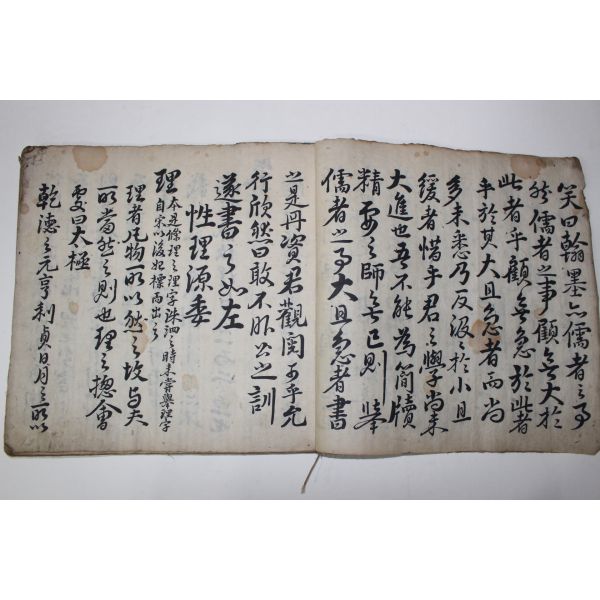 笑曰翰墨亦儒者之事
然儒者之事顧無大於
此者乎顧無急於此者
乎於其大且急者而尚
多未悉乃反汲汲於小且
緩者惜乎君之學尚未
大進也吾不能為簡牘
精要之師無已則擧
儒者之事大且急者書
之是丹資君觀閱可乎允
行欣然曰敢不佩公之訓
遂書之如左
性理源委
理 本是條理之理字洙泗之時未嘗與理字
自宋以後始標而出之
理者凡物所以然之故与夫
所當然之則也理之摠會
處曰太極
乾德之元亨利貞日月之所以